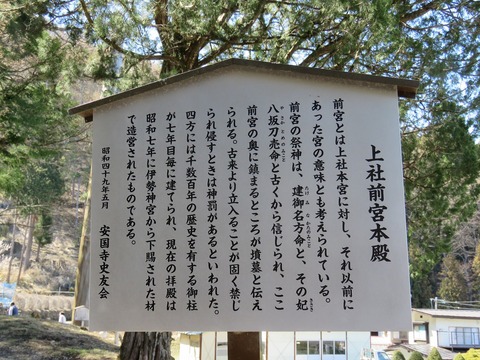 上社前宮本殿
前宮とは上社本宮に対し、それ以前に
あった宮の意味とも考えられている。
前宮の祭神は、建御名方命と、その妃
八坂刀売命と古くから信じられ、ここ
前宮の奥に鎮まるところが墳墓と伝え
られる。古来より立入ることが固く禁じ
られ侵すときは神罰があるといわれた。
四方には千数百年の歴史を有する御柱
が七年目毎に建てられ、現在の拝殿は
昭和七年に伊勢神宮から下賜された材
で造営されたものである。
昭和四十九年五月　安国寺史友会